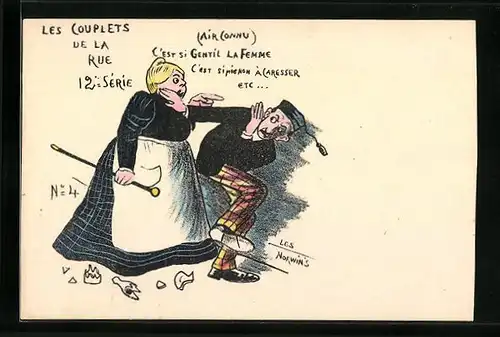 LES COUPLETS
DE LA
RUE
12e SÉRIE
(AIR CONNU)
C'EST SI GENTIL LA FEMME
C'EST SI MIGNON À CARESSER
ETC...
No 4
LES
NORWIN'S